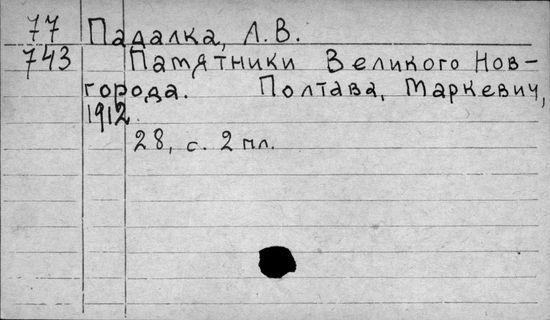 77 Падалка, Л. В.
743 Памятники Великого Нов-
города. Полтава, Маркевич,
1912.
28, с. 2 пл.